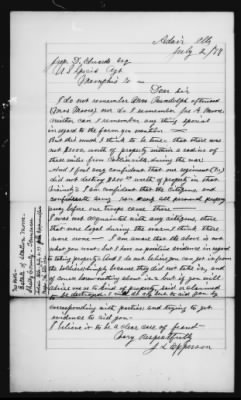 Adair Ills
July 2/79
Geo. T. Edwards Esq
U S Special Agt
Memphis Te —
Dear Sir
I do not remember Mrs Randolph afterward
(Mrs Moore) nor do I remember S. A. Moore
neither can I remember any thing special
in regard to the farm you mention —
But this much I think to be true: that there was
not $1000 worth of property within a radius of
three miles from Collierville during the war
And I feel very confident that our regiment
did not destroy $500 worth of property in that
vicinity: I am confident that the citizens and
confederate army had used all personal property
long before our troops came there —
I was not acquainted with any citizens there
that were loyal during the war and think there
were none — I am aware that the above is not
what you want: but I have no positive evidence in regard
to taking property And I do not believe you can get it from
the soldiers simply because they did not take it, and
of course know nothing about it — but if you will
advise me as to kind of property said or claimed
to be destroyed — I will do all I can to aid you by
corresponding with parties and trying to get
evidence to aid you —
I believe it to be a clear case of fraud —
Very Respectfully
J L Epperson